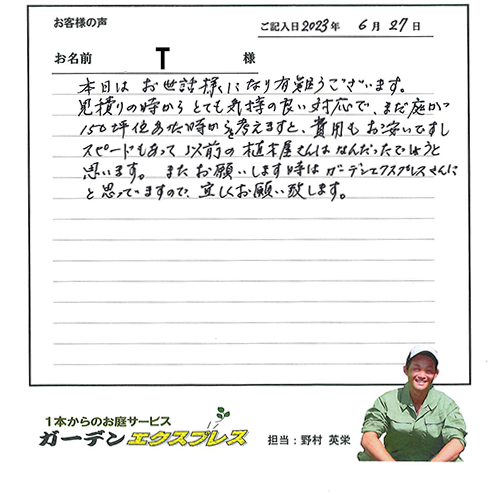 お客様の声
ご記入日 2023年 6月 27日
お名前 T 様
本日は お世話様になり有難うございます。
見積りの時から とても気持の良い対応で、まだ庭が
150坪位あった時からを考えますと、費用も お安いですし
スピードもあって 以前の 植木屋さんはなんだったでしょうと
思います。 また お願いします時は ガーデンエクスプレスさんに
と思っていますので、宜しくお願い致します。
1本からのお庭サービス
ガーデンエクスプレス
担当:野村 英栄